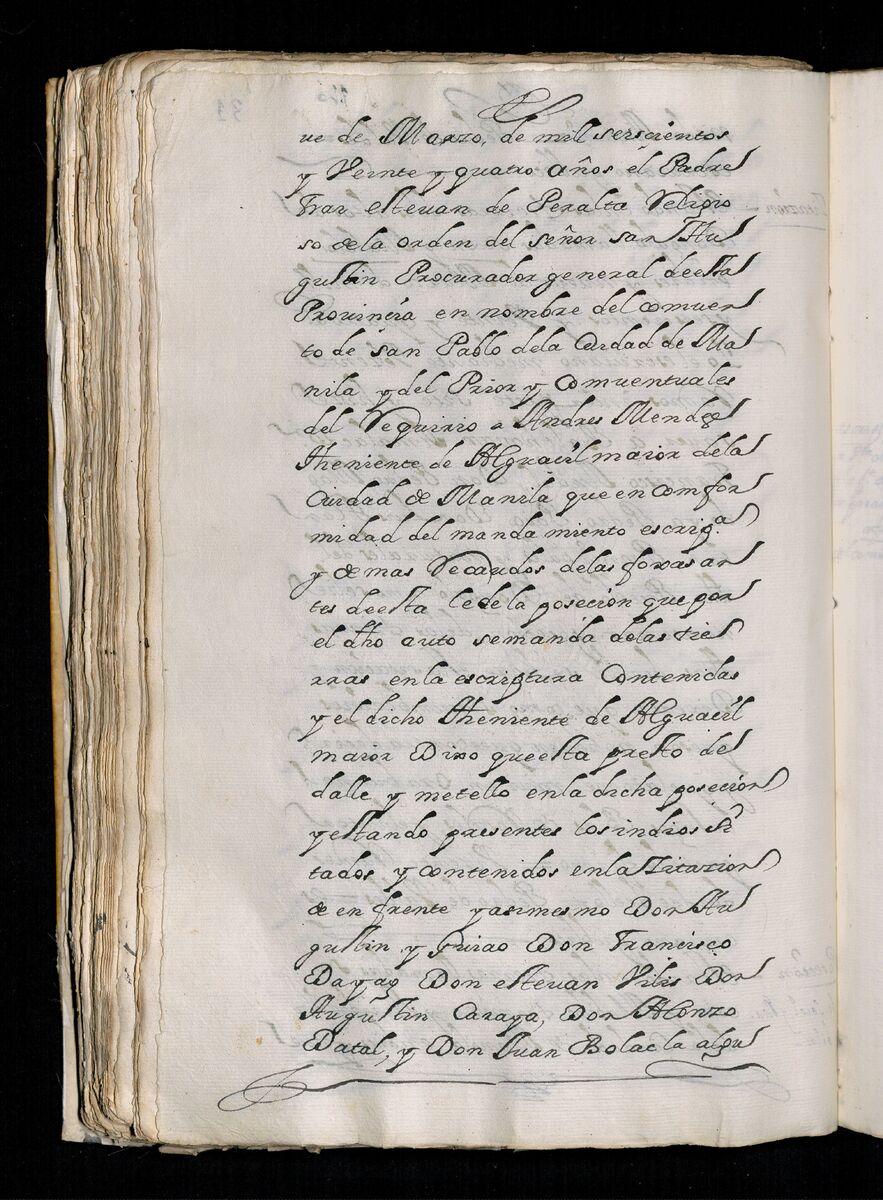 ue de Marzo, de mil seiscientos
y Veinte y quatro años el Padre
Frai estevan de Peralta Religio
so dela orden del señor san Au
gustin Procurador general deesta
Provincia en nombre del comuen
to de san Pablo dela Ciudad de Ma
nila y del Prior y Comuentuales
del Requirio a Andres Mendez
theniente de Alguacil maior dela
Ciudad de Manila que en comfor
midad del manda miento escrip.ª
y demas Recaudos delas foxas an
tes deesta le de la posecion que por
el dho auto semanda delas tier
rras en la escriptura Contenidas
y el dicho theniente de Alguacil
maior Dixo queesta presto del
dalle y metello en la dicha posecion
y estando presentes los indios Si
tados y contenidos en la Zitazion
de en frente y asimesmo Don Au
gustin y Guiao Don Francisco
Dayag Don estevan Vilis Don
Augustin Caraya, Don Alonzo
Datal, y Don Juan Bolac la algu